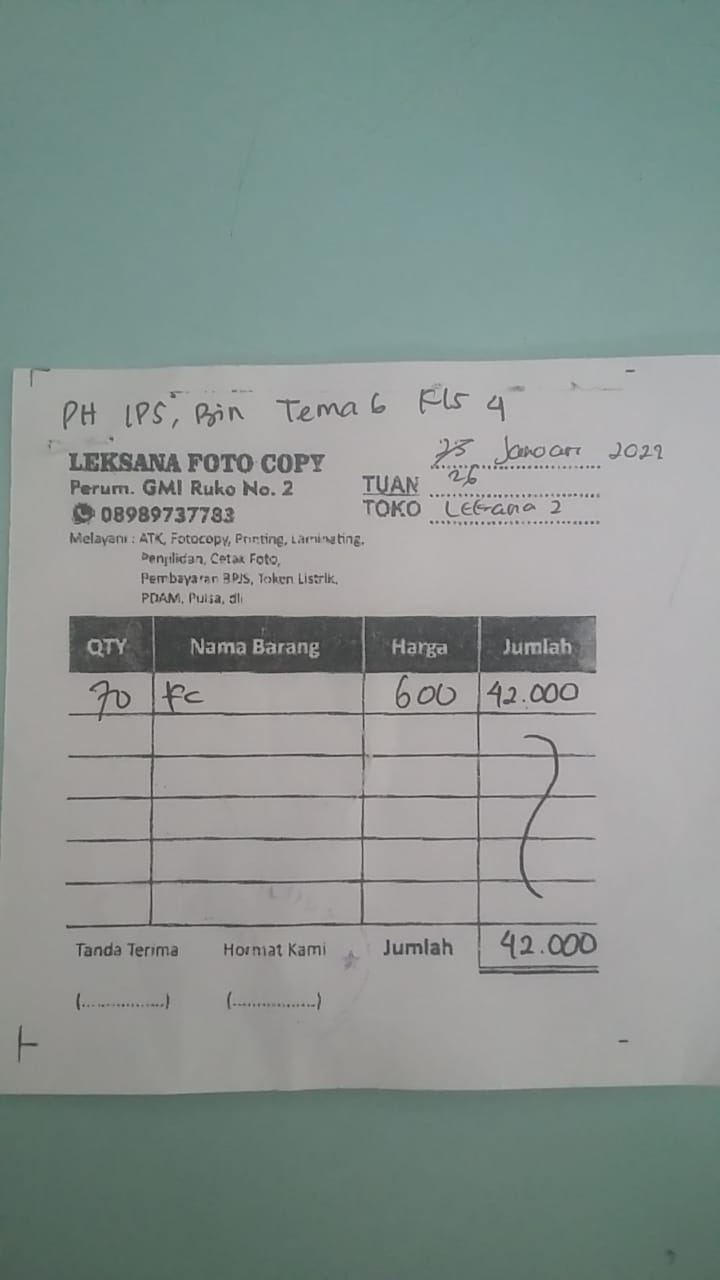 PH IPS, Bin Tema 6 Kls 4
LEKSANA FOTO COPY
Perum. GMI Ruko No. 2
08989737783
Melayani : ATK, Fotocopy, Printing, Laminating,
Penjilidan, Cetak Foto,
Pembayaran BPJS, Token Listrik,
PDAM, Pulsa, dll
Januari 2022
TUAN 26
TOKO 2
QTY Nama Barang Harga Jumlah
70 Fc 600 42.000
Tanda Terima Hormat Kami Jumlah 42.000
(..................) (..................)